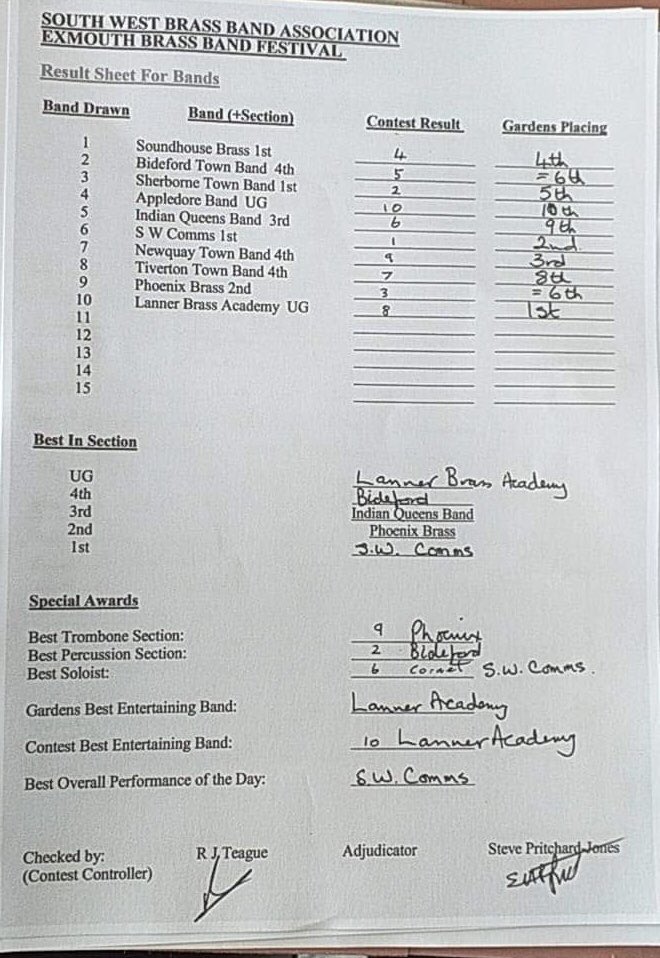 SOUTH WEST BRASS BAND ASSOCIATION
EXMOUTH BRASS BAND FESTIVAL
Result Sheet For Bands
Band Drawn Band (+Section) Contest Result Gardens Placing
1 Soundhouse Brass 1st 4 4th
2 Bideford Town Band 4th 5 = 6th
3 Sherborne Town Band 1st 2 5th
4 Appledore Band UG 10 10th
5 Indian Queens Band 3rd 6 9th
6 S W Comms 1st 1 2nd
7 Newquay Town Band 4th 9 3rd
8 Tiverton Town Band 4th 7 8th
9 Phoenix Brass 2nd 3 = 6th
10 Lanner Brass Academy UG 8 1st
11
12
13
14
15
Best In Section
UG Lanner Brass Academy
4th Bideford
3rd Indian Queens Band
2nd Phoenix Brass
1st S.W. Comms
Special Awards
Best Trombone Section: 9 Phoenix
Best Percussion Section: 2 Bideford
Best Soloist: 6 Cornet S.W. Comms.
Gardens Best Entertaining Band: Lanner Academy
Contest Best Entertaining Band: 10 Lanner Academy
Best Overall Performance of the Day: S.W. Comms
Checked by: R J Teague Adjudicator Steve Pritchard-Jones
(Contest Controller)